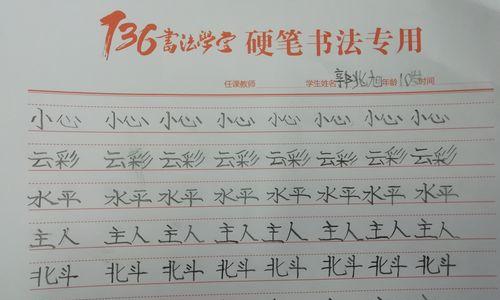 136書法學字 硬笔书法专用
任课教师 学生姓名 郭兆旭 年龄 10岁 时间
小心 小心 小心 小心 小心 小心 小心 小心
云彩 云彩 云彩 云彩 云彩 云彩 云彩 云彩
水平 水平 水平 水平 水平 水平 水平 水平
主人 主人 主人 主人 主人 主人 主人 主人
北斗 北斗 北斗 北斗 北斗 北斗 北斗 北斗